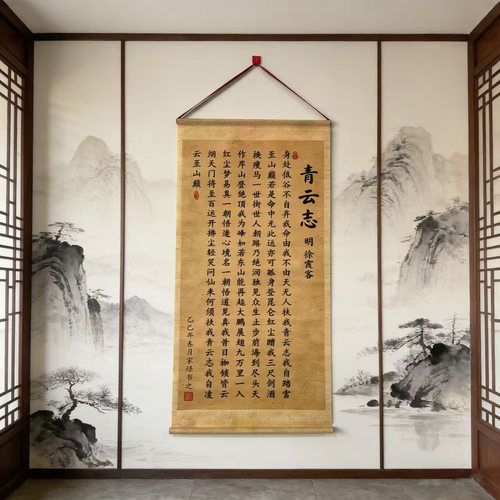 青云志
明 徐霞客
身处低谷不自弃我命由我不由天无人扶我青云志我自踏雪
至山巅若是命中无此运亦可孤身登昆仑红尘赠我三尺剑酒
换瘦马一世街世人朝路乃绝涧独见众生止步前海到尽头天
作岸山登绝顶我为峰如若东山能再起大鹏展翅九万里一入
红尘梦易真一朝悟道心境名一朝悟道见真我昔日枷锁皆云
烟天门将至百运开拂尘轻笑问仙来何须扶我青云志我自凌
云至山巅
乙巳年春月家绿书之